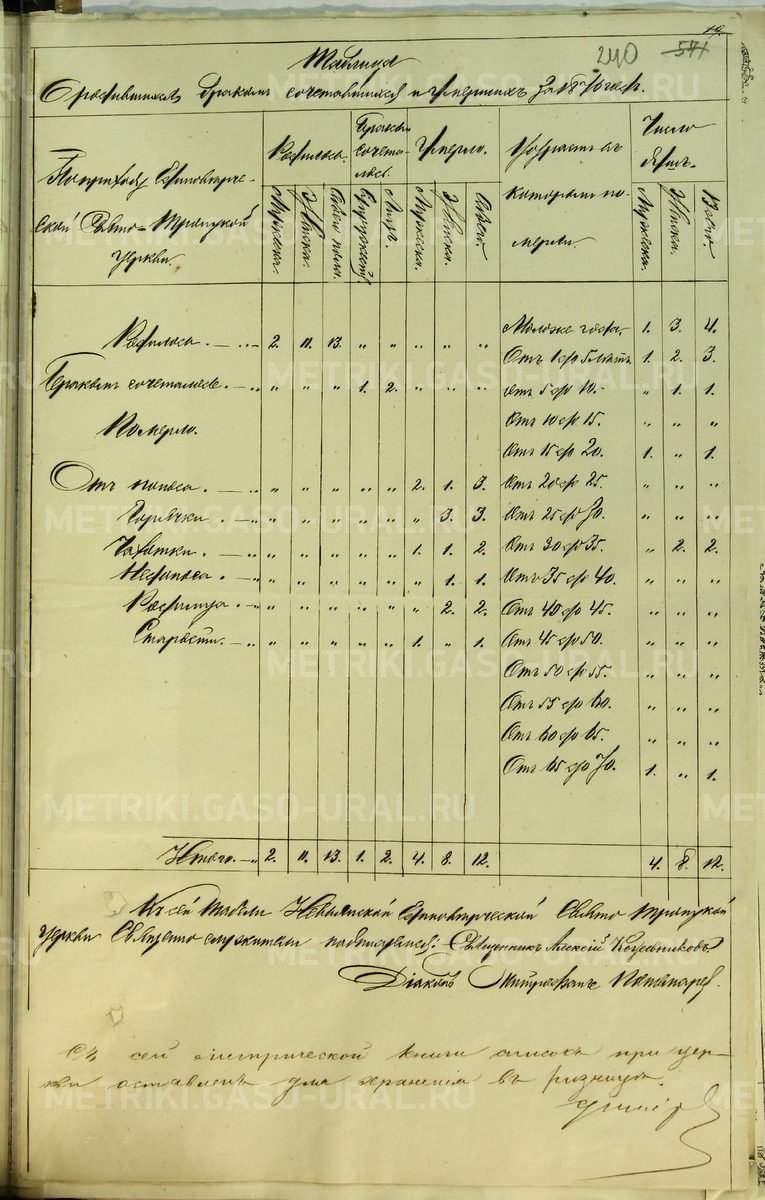 19.
240 571
Таблица
О родившихся, бракомъ сочетавшихся и умершихъ за 1870 годъ.
По приходу Единовѣрче-
ской Свято-Троицкой
церкви.
Родилось.
Бракомъ
сочета-
лось.
Умерло.
Возрастъ въ
которомъ по-
мерли.
Число
лѣтъ.
Мужеска. Женска. Обоего пола. Супружествъ. Лицъ. Мужеска. Женска. Обоего. Мужеска. Женска. Всего.
Родилось. — 2. 11. 13. „ „ „ „ „ Моложе года. 1. 3. 4.
Отъ 1 до 5 лѣтъ. 1. 2. 3.
Бракомъ сочеталось. — „ „ „ 1. 2. „ „ „ Отъ 5 до 10. „ 1. 1.
Померло. Отъ 10 до 15. „ „ „
Отъ 15 до 20. 1. „ 1.
Отъ поноса. — „ „ „ „ „ 2. 1. 3. Отъ 20 до 25. „ „ „
Горячки. — „ „ „ „ „ „ 3. 3. Отъ 25 до 30. „ „ „
Чахотки. — „ „ „ „ „ 1. 1. 2. Отъ 30 до 35. „ 2. 2.
— „ „ „ „ „ „ 1. 1. Отъ 35 до 40. „ „ „
Родимца. — „ „ „ „ „ „ 2. 2. Отъ 40 до 45. „ „ „
Старости. — „ „ „ „ „ 1. „ 1. Отъ 45 до 50. „ „ „
Отъ 50 до 55. „ „ „
Отъ 55 до 60. „ „ „
Отъ 60 до 65. „ „ „
Отъ 65 до 70. 1. „ 1.
Итого. — 2. 11. 13. 1. 2. 4. 8. 12. 4. 8. 12.
Къ сей табели Невьянской Единовѣрческой Свято Троицкой
церкви Священно служители подписуемся: Священникъ Алексій
Діаконъ Митрофанъ Пономаревъ.
Съ сей метрической книги списокъ при цер-
кви оставленъ для храненія въ ризницѣ.
METRIKI.GASO-URAL.RU